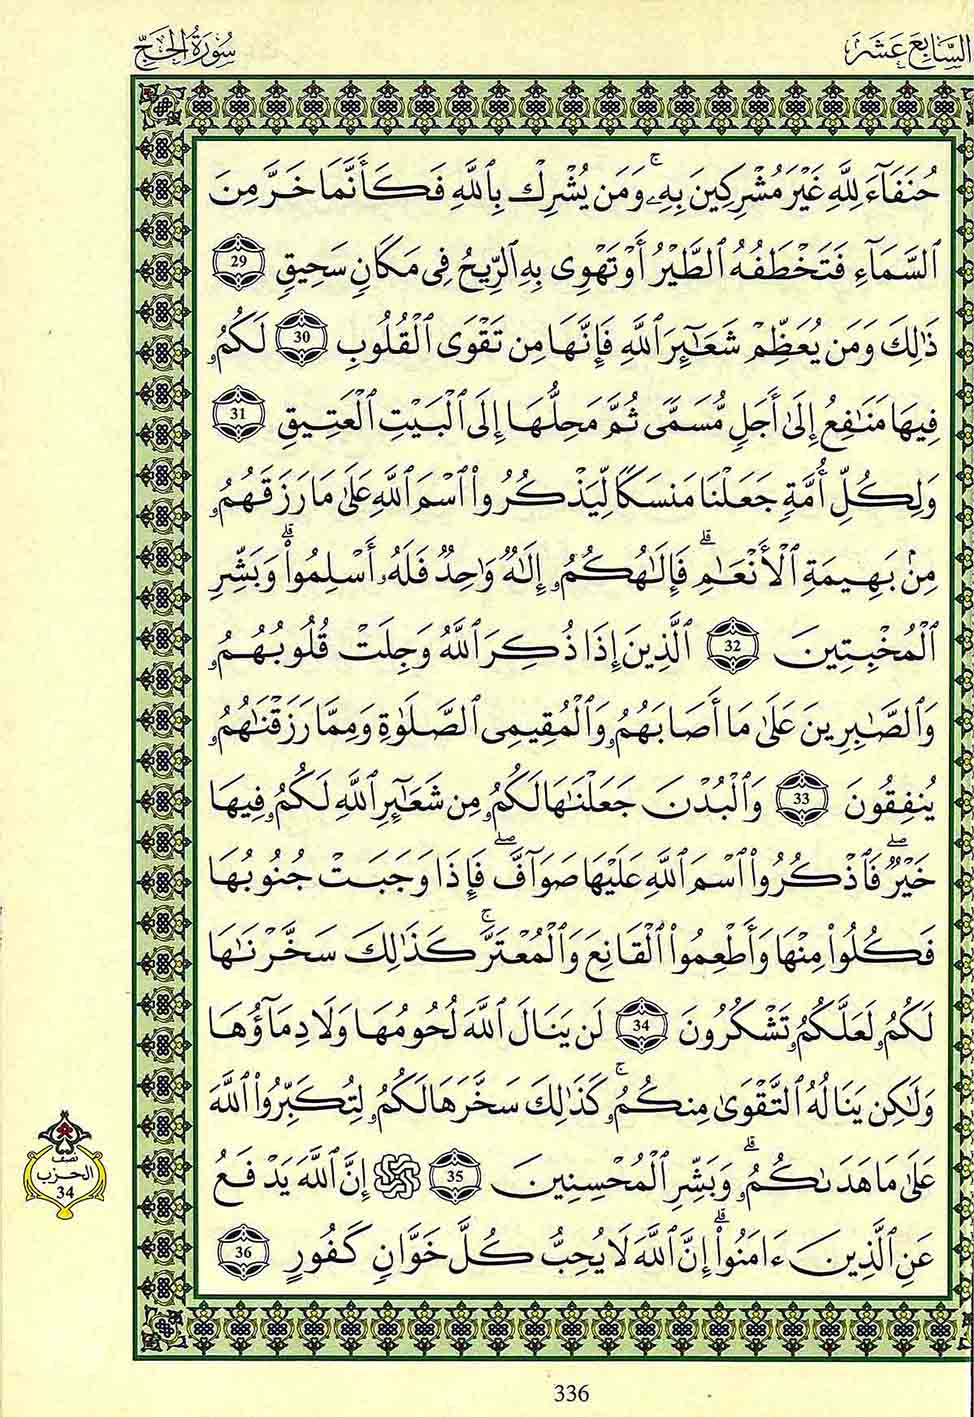 السَّابِعَ عَشَرَ
سُورَةُ الحَجِّ
حُنَفَآءَ لِلَّهِ غَيْرَ مُشْرِكِينَ بِهِۦۚ وَمَن يُشْرِكْ بِاللَّهِ فَكَأَنَّمَا خَرَّ مِنَ
اَ۬لسَّمَآءِ فَتَخْطَفُهُ اُ۬لطَّيْرُ أَوْ تَهْوِى بِهِ اِ۬لرِّيحُ فِى مَكَانٍ سَحِيقٍ 29
ذَٰلِكَ وَمَن يُعَظِّمْ شَعَٰٓئِرَ اَ۬للَّهِ فَإِنَّهَا مِن تَقْوَى اَ۬لْقُلُوبِ 30 لَكُمُۥ
فِيهَا مَنَٰفِعُ إِلَىٰٓ أَجَلٍ مُّسَمًّى ثُمَّ مَحِلُّهَا إِلَى اَ۬لْبَيْتِ اِ۬لْعَتِيقِ 31
وَلِكُلِّ أُمَّةٍ جَعَلْنَا مَنسَكًا لِّيَذْكُرُواْ اُ۪سْمَ اَ۬للَّهِ عَلَىٰ مَا رَزَقَهُمُۥ
مِنۢ بَهِيمَةِ اِ۬لْأَنْعَٰمِۗ فَإِلَٰهُكُمُۥ إِلَٰهٌ وَٰحِدٌ فَلَهُۥ أَسْلِمُواْۗ وَبَشِّرِ
اِ۬لْمُخْبِتِينَ 32 اَ۬لَّذِينَ إِذَا ذُكِرَ اَ۬للَّهُ وَجِلَتْ قُلُوبُهُمُۥ
وَالصَّٰبِرِينَ عَلَىٰ مَا أَصَابَهُمُۥ وَالْمُقِيمِى اِ۬لصَّلَوٰةِ وَمِمَّا رَزَقْنَٰهُمُۥ
يُنفِقُونَ 33 وَالْبُدْنَ جَعَلْنَٰهَا لَكُمُۥ مِن شَعَٰٓئِرِ اِ۬للَّهِ لَكُمُۥ فِيهَا
خَيْرٌۖ فَاذْكُرُواْ اُ۪سْمَ اَ۬للَّهِ عَلَيْهَا صَوَآفَّۖ فَإِذَا وَجَبَتْ جُنُوبُهَا
فَكُلُواْ مِنْهَا وَأَطْعِمُواْ اُ۬لْقَانِعَ وَالْمُعْتَرَّۚ كَذَٰلِكَ سَخَّرْنَٰهَا
لَكُمُۥ لَعَلَّكُمُۥ تَشْكُرُونَ 34 لَن يَنَالَ اَ۬للَّهَ لُحُومُهَا وَلَا دِمَآؤُهَا
وَلَٰكِن يَنَالُهُ اُ۬لتَّقْوَىٰ مِنكُمُۥۚ كَذَٰلِكَ سَخَّرَهَا لَكُمُۥ لِتُكَبِّرُواْ اُ۬للَّهَ
عَلَىٰ مَا هَدَىٰكُمُۥۗ وَبَشِّرِ اِ۬لْمُحْسِنِينَ 35 إِنَّ اَ۬للَّهَ يَدْفَعُ
عَنِ اِ۬لَّذِينَ ءَامَنُواْۗ إِنَّ اَ۬للَّهَ لَا يُحِبُّ كُلَّ خَوَّانٍ كَفُورٍ 36
نصف
الحزب
34
336